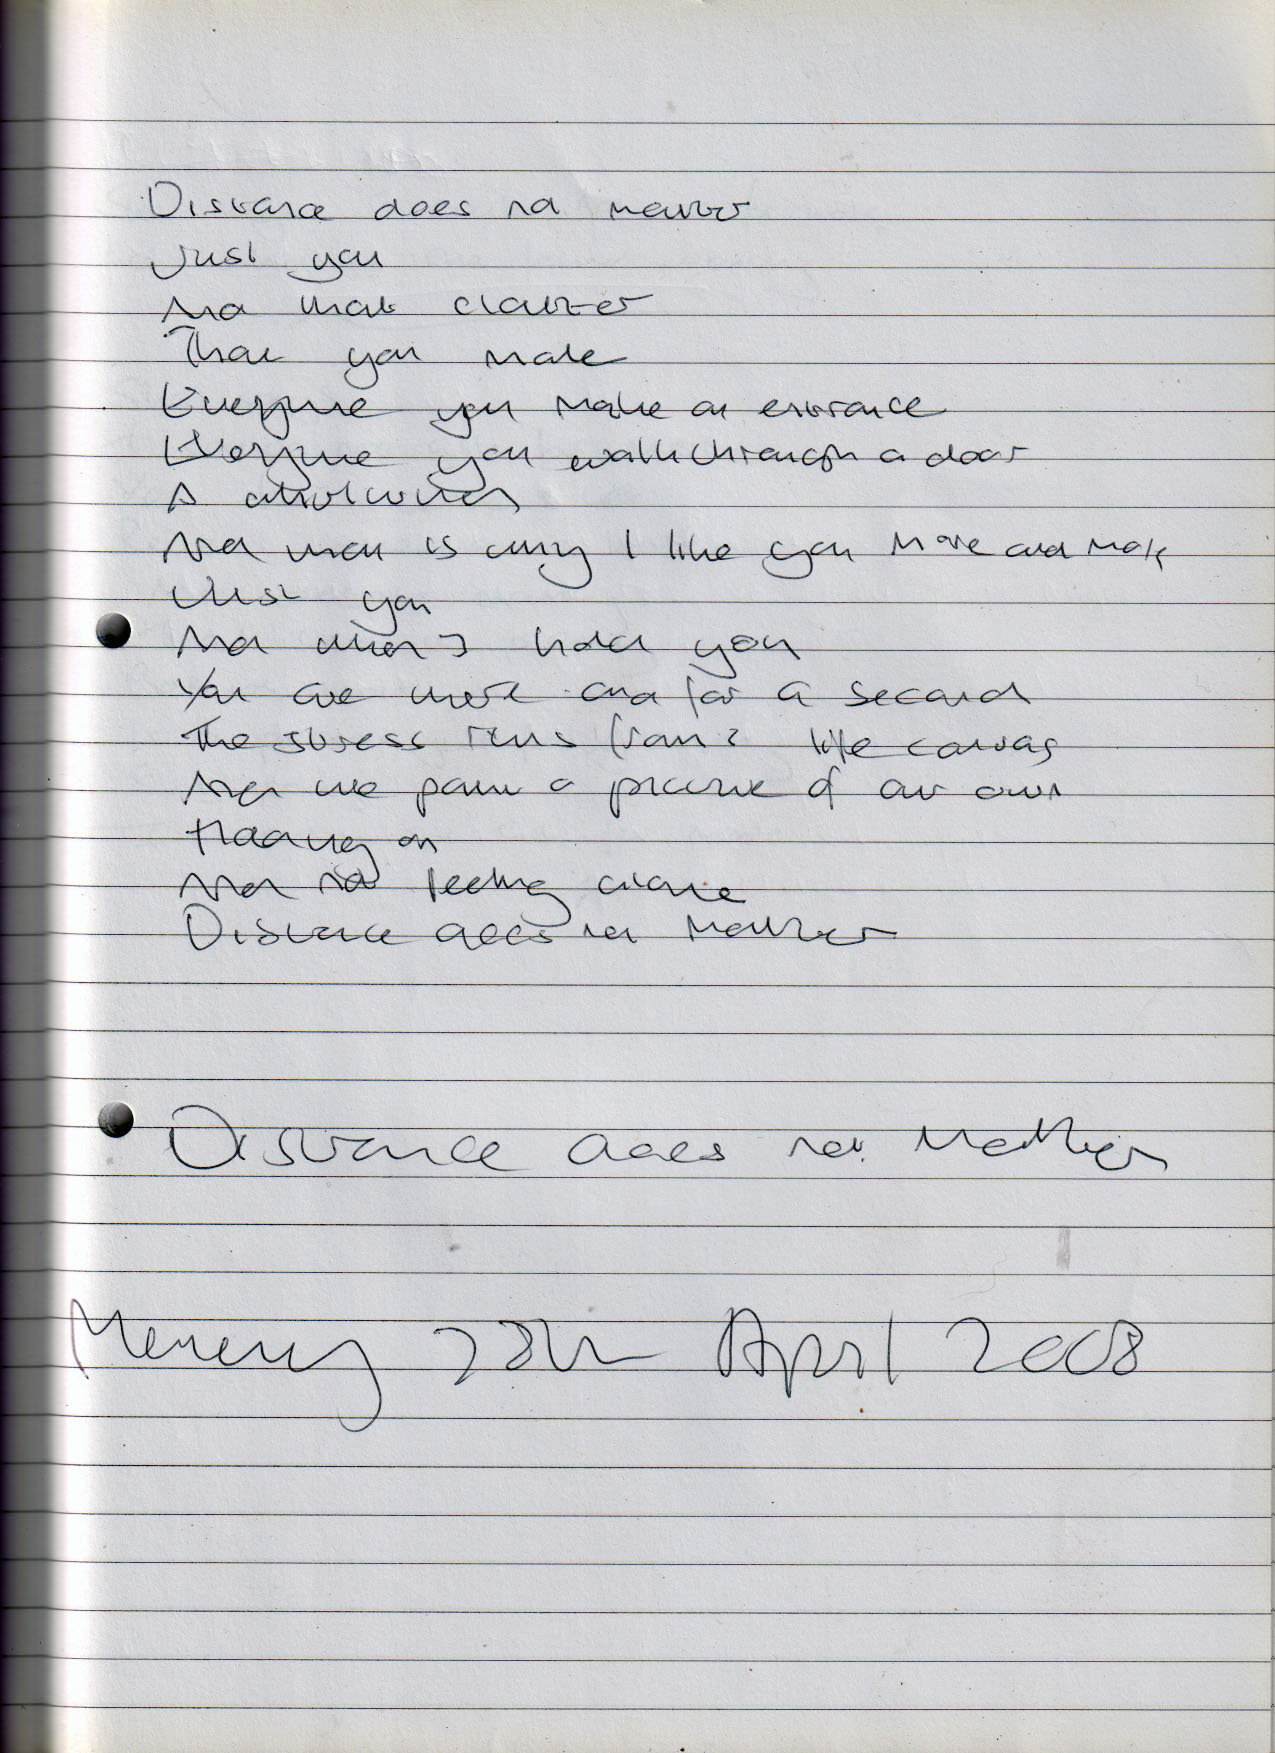 Distance does not matter
Just you
And that clatter
That you make
Everytime you make an entrance
Everytime you walk through a door
A whirlwind
And that is why I like you more and more
Just you
And when I hold you
You are there and for a second
The stress runs from life canvas
And we paint a picture of our own
Holding on
And not feeling alone
Distance does not matter
Distance does not matter
28th April 2008